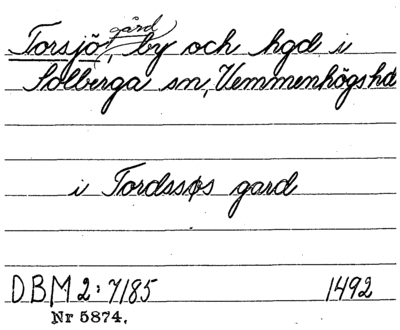 gård
Torsjö, by och hgd i
Solberga sn, Vemmenhögs hd
i Tordssøs gard
DBM 2:7185 1492
Nr 5874.